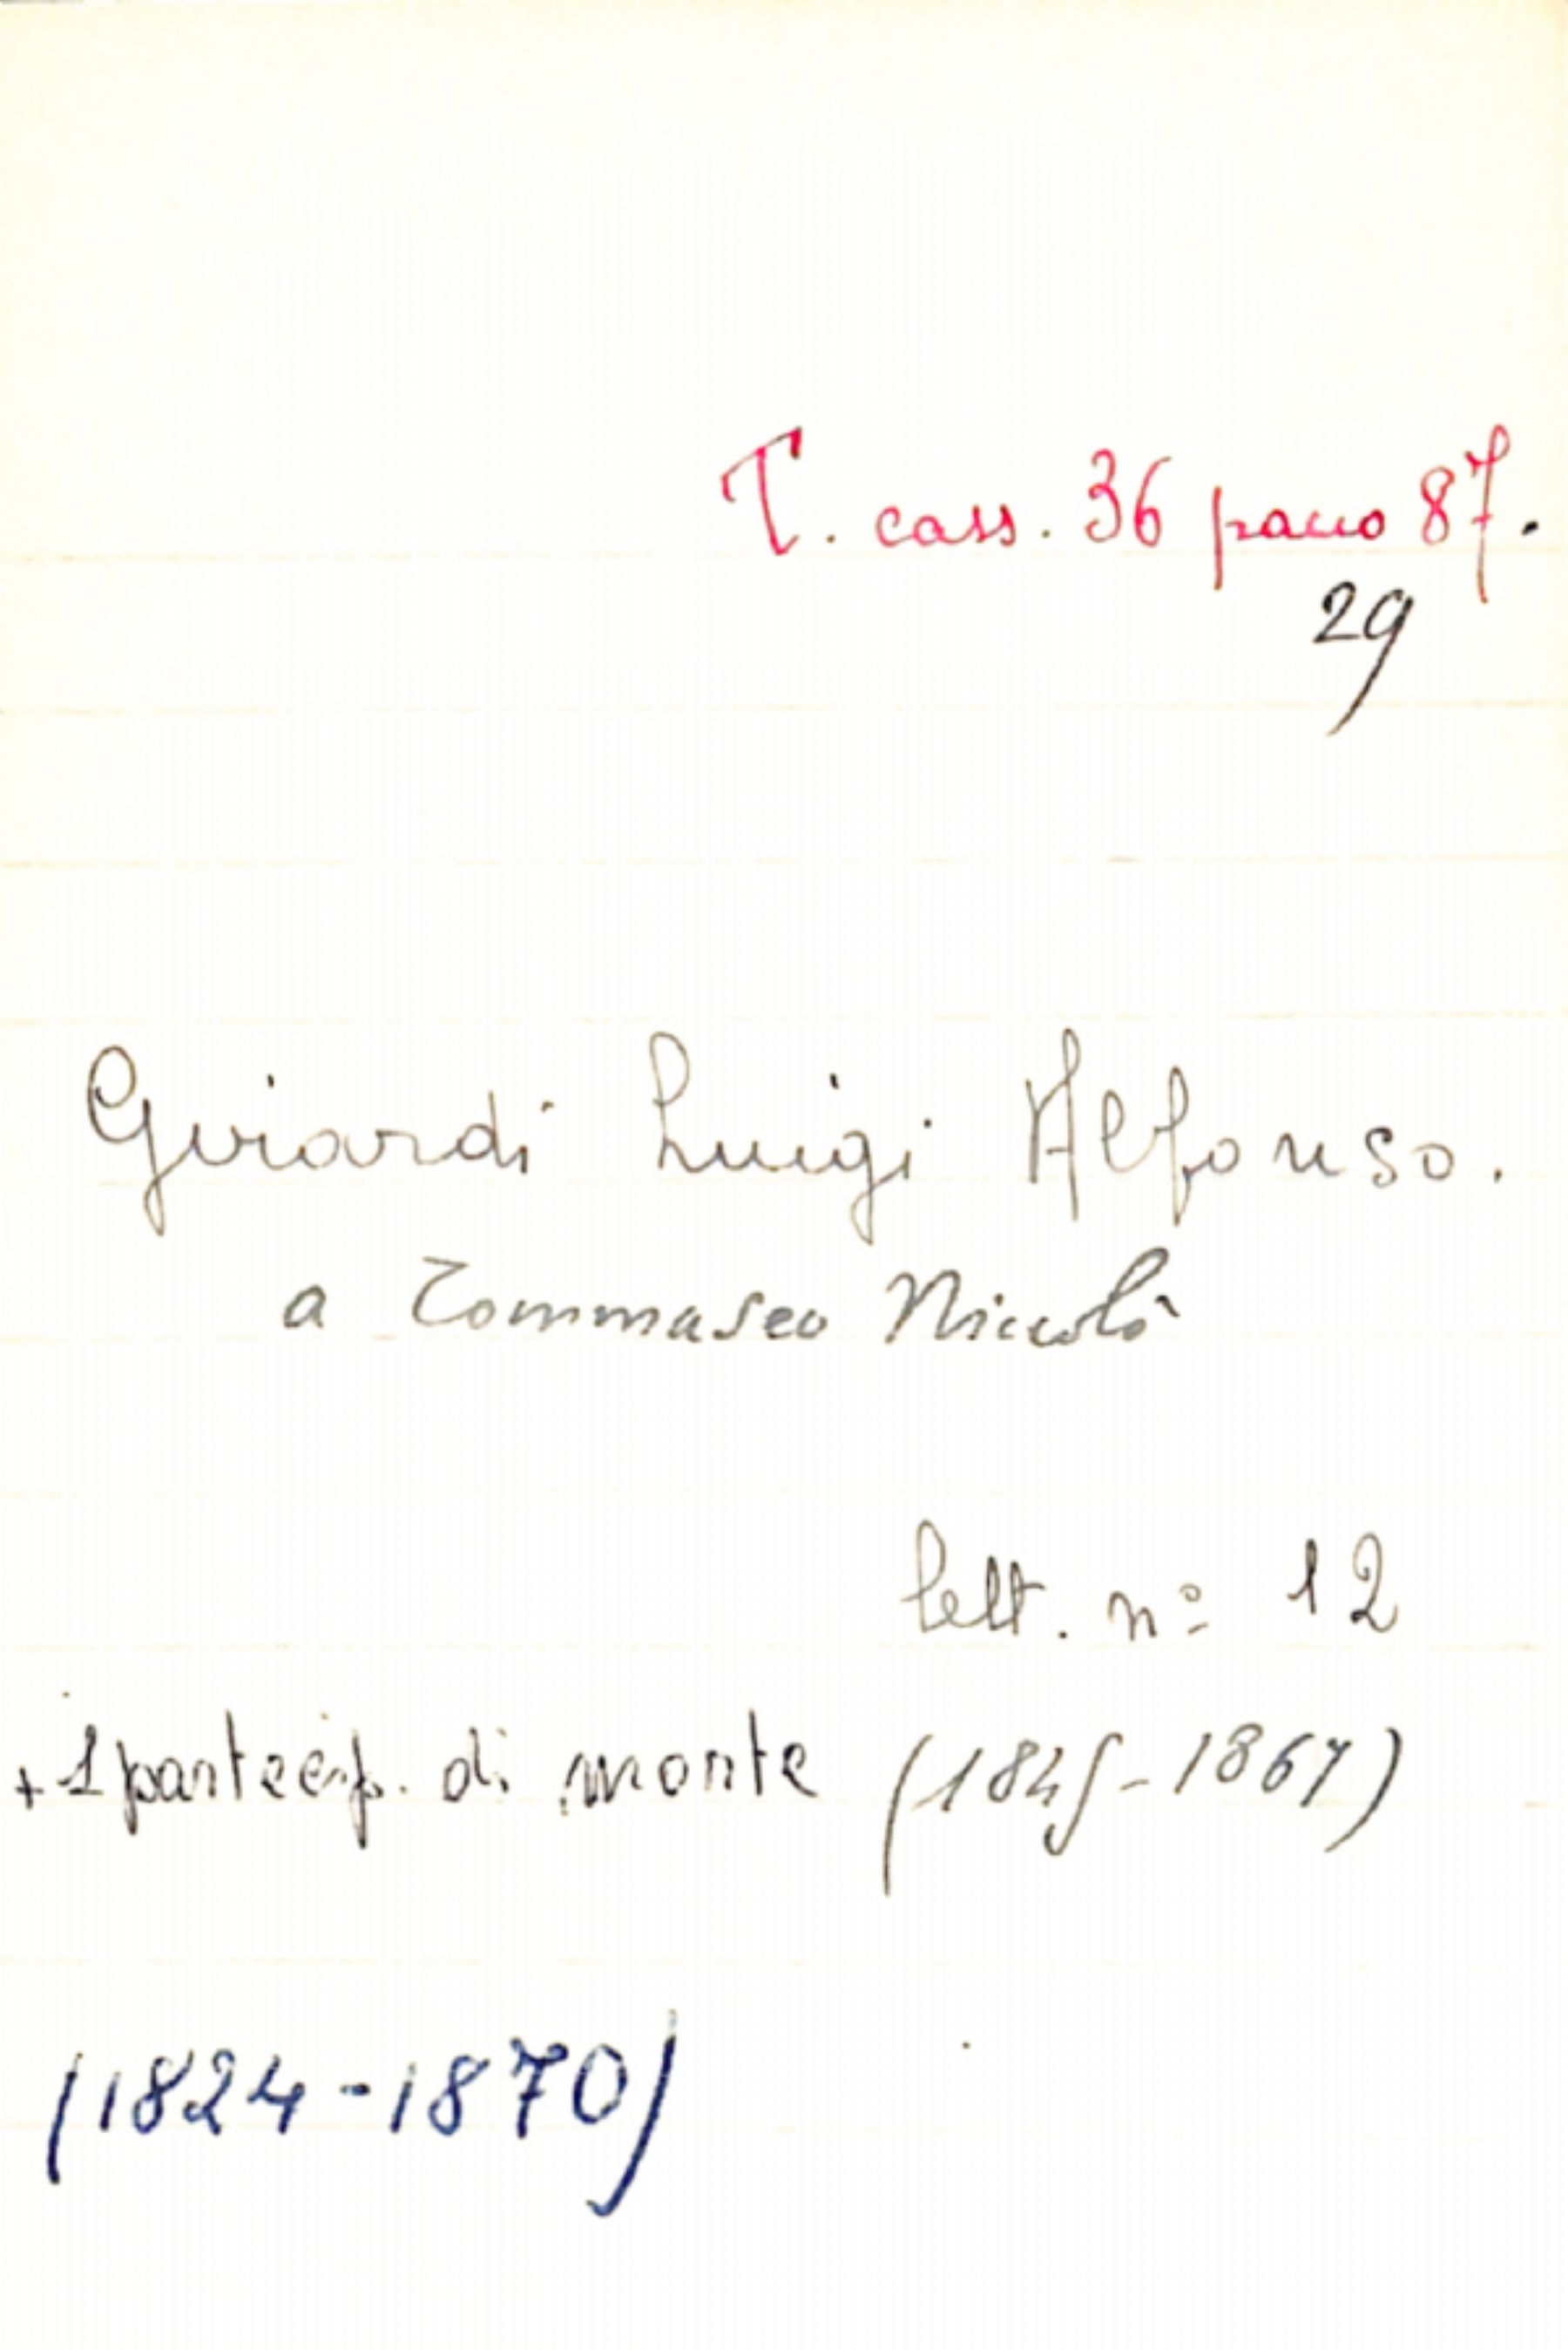 T. cass. 36 pacco 87.
29
Girardi Luigi Alfonso.
a Tommaseo Niccolò
lett. nº 12
+ 1 partecip. di morte (1845-1867)
(1824-1870)